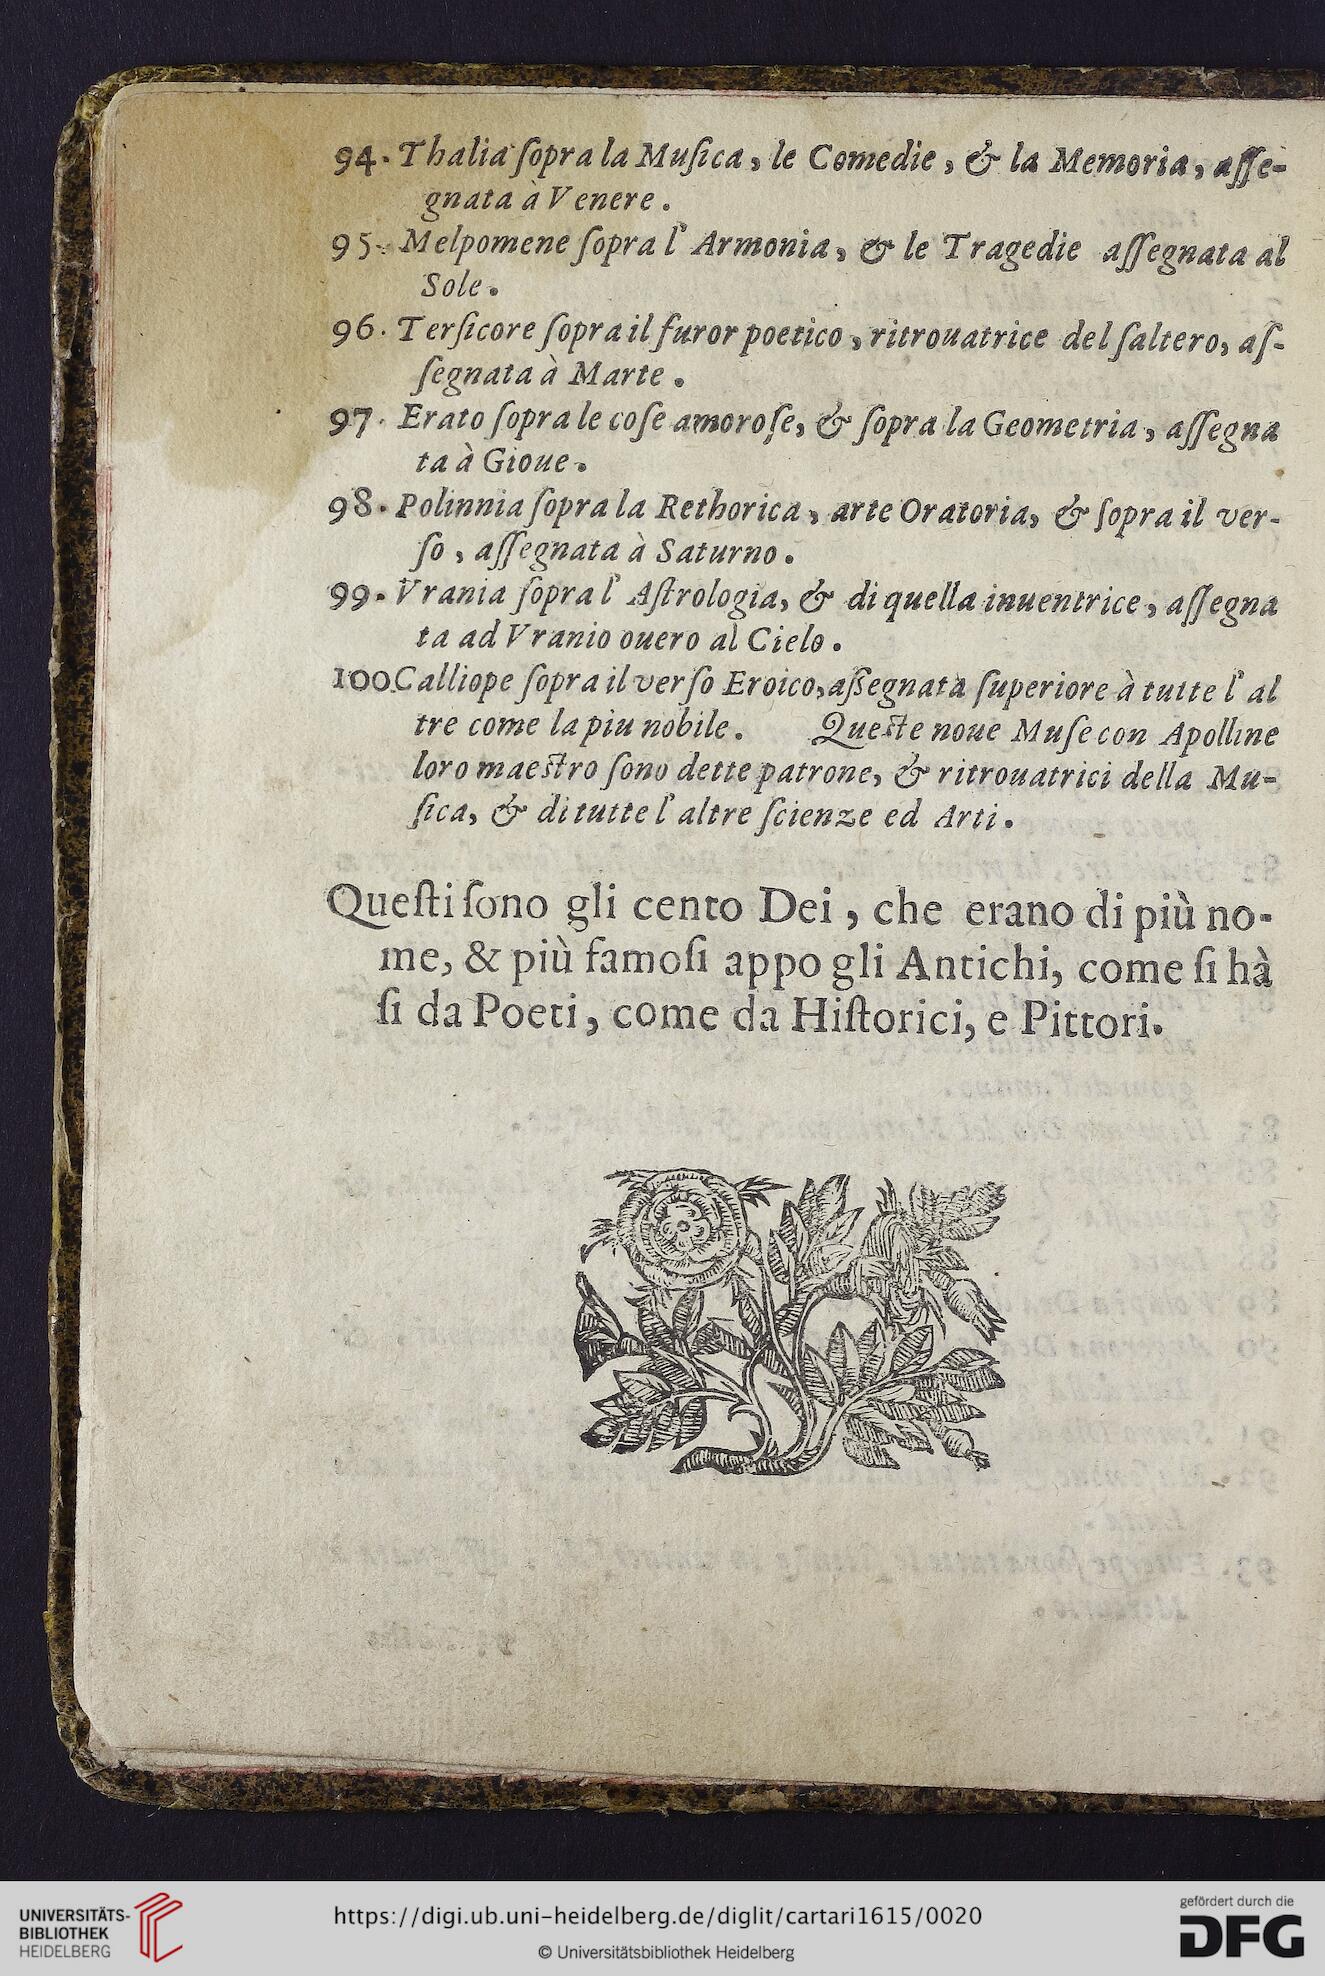 94. Thalia ſopra la Muſica, le Comedie, & la Memoria, aſſe-
gnata à Venere.
95. Melpomene ſopra l' Armonia, & le Tragedie aſſegnata al
Sole.
96. Terſicore ſopra il furor poetico, ritrouatrice del ſaltero, aſ-
ſegnata à Marte.
97. Erato ſopra le coſe amoroſe, & ſopra la Geometria, aſſegna
ta à Gioue.
98. Polinnia ſopra la Rethorica, arte Oratoria, & ſopra il ver-
ſo, aſſegnata à Saturno.
99. Vrania ſopra l' Aſtrologia, & di quella inuentrice, aſſegna
ta ad Vranio ouero al Cielo.
100. Calliope ſopra il verſo Eroico, aßegnata ſuperiore à tutte l' al
tre come la piu nobile. Queſte noue Muſe con Apolline
loro maeſtro ſono dette patrone, & ritrouatrici della Mu-
ſica, & di tutte l' altre ſcienze ed Arti.
Queſti ſono gli cento Dei, che erano di più no-
me, & più famoſi appo gli Antichi, come ſi hà
ſi da Poeti, come da Hiſtorici, e Pittori.
UNIVERSITÄTS-
BIBLIOTHEK
HEIDELBERG
https://digi.ub.uni-heidelberg.de/diglit/cartari1615/0020
© Universitätsbibliothek Heidelberg
gefördert durch die
DFG